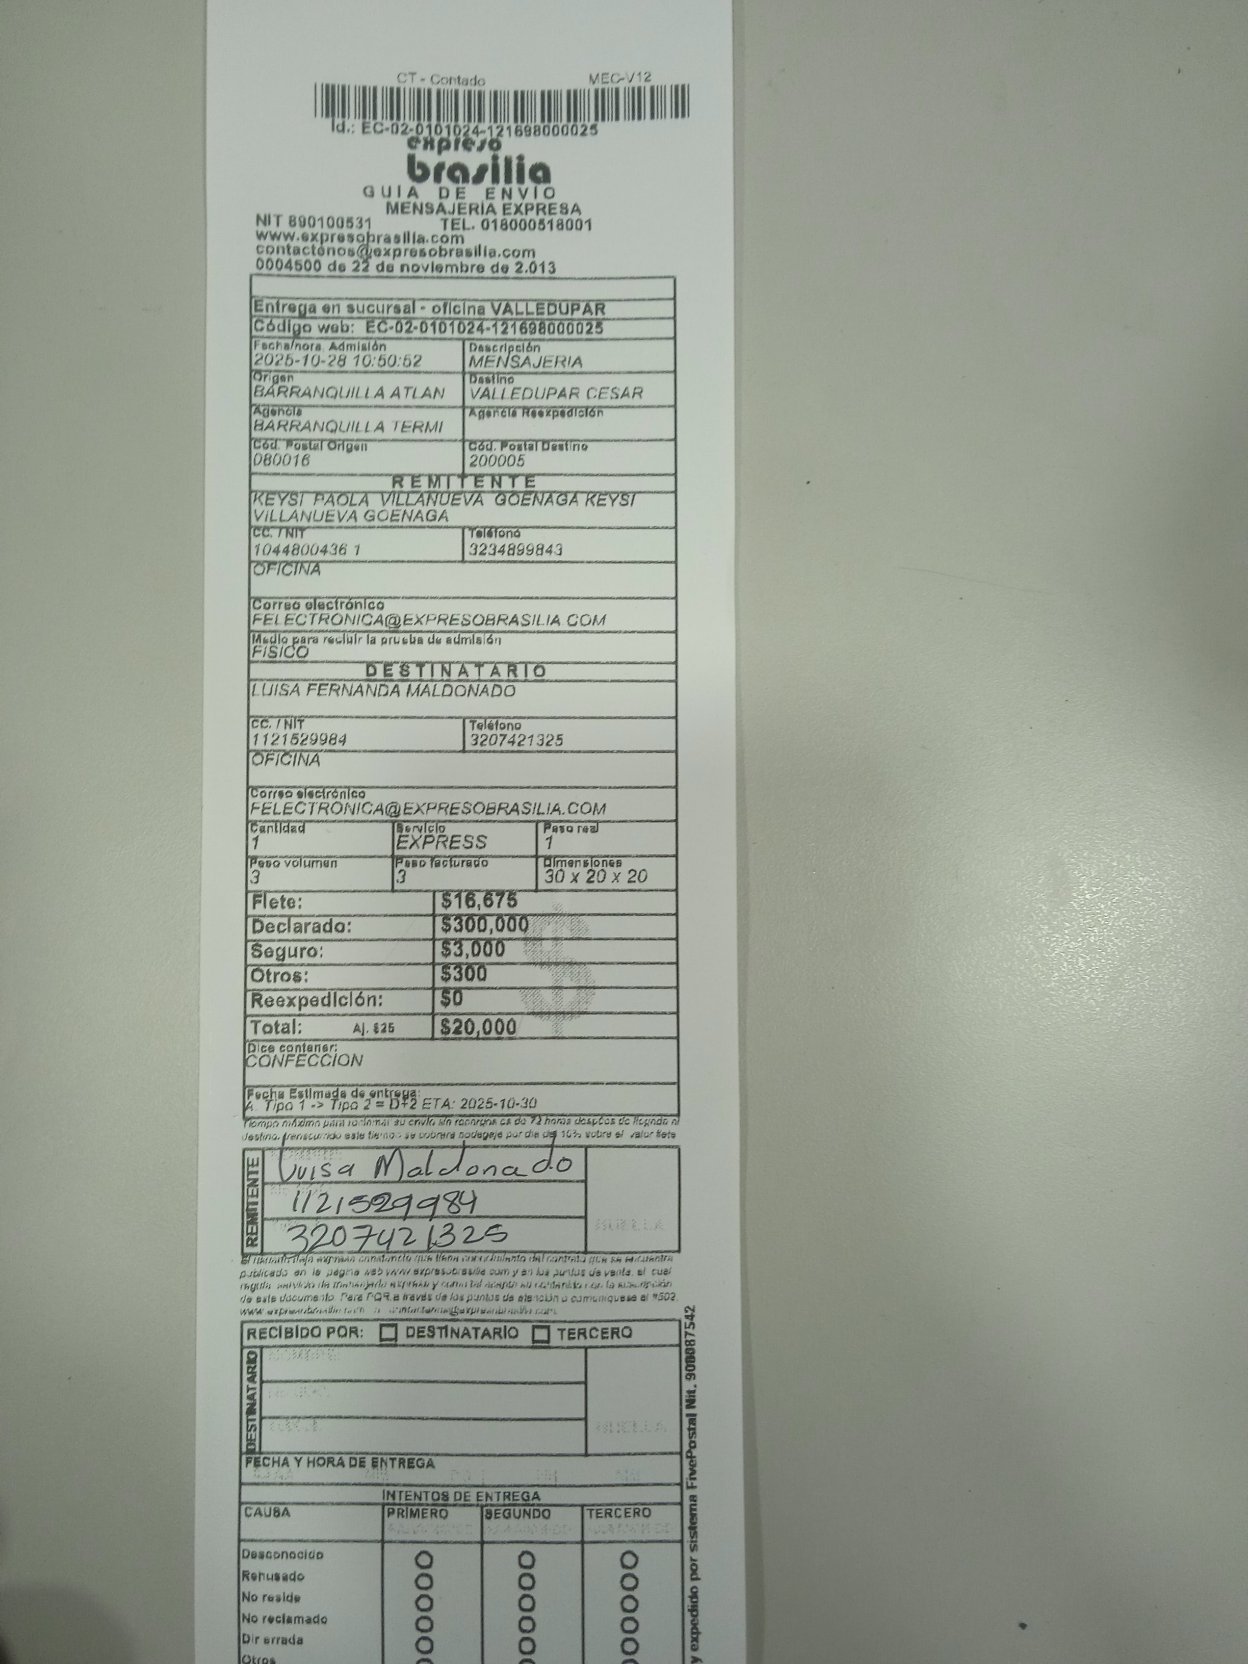 CT - Contado MEC-V12
Id.: EC-02-0101024-121698000025
expreso
brasilia
GUIA DE ENVIO
MENSAJERIA EXPRESA
NIT 890100531 TEL. 018000518001
www.expresobrasilia.com
contactenos@expresobrasilia.com
0004500 de 22 de noviembre de 2.013
Entrega en sucursal - oficina VALLEDUPAR
Código web: EC-02-0101024-121698000025
Fecha/hora Admisión Descripción
2025-10-28 10:50:52 MENSAJERIA
Origen Destino
BARRANQUILLA ATLAN VALLEDUPAR CESAR
Agencia Agencia Reexpedición
BARRANQUILLA TERMI
Cód. Postal Origen Cód. Postal Destino
080016 200005
REMITENTE
KEYSI PAOLA VILLANUEVA GOENAGA KEYSI
VILLANUEVA GOENAGA
CC. / NIT Teléfono
1044800436 1 3234899843
OFICINA
Correo electrónico
FELECTRONICA@EXPRESOBRASILIA.COM
Medio para recibir la prueba de admisión
FISICO
DESTINATARIO
LUISA FERNANDA MALDONADO
CC. / NIT Teléfono
1121529984 3207421325
OFICINA
Correo electrónico
FELECTRONICA@EXPRESOBRASILIA.COM
Cantidad Servicio Peso real
1 EXPRESS 1
Peso volumen Peso facturado Dimensiones
3 3 30 x 20 x 20
Flete: $16,675
Declarado: $300,000
Seguro: $3,000
Otros: $300
Reexpedición: $0
Total: Aj. $25 $20,000
Dice contener:
CONFECCION
Fecha Estimada de entrega:
A. Tipo 1 -> Tipo 2 = D+2 ETA: 2025-10-30
Tiempo máximo para reclamar su envío sin recargos es de 72 horas después de llegado al
destino, transcurrido este tiempo se cobrara bodegaje por día del 10% sobre el valor flete
REMITENTE
Luisa Maldonado
1121529984
3207421325
HUELLA
El usuario deja expresa constancia que tiene conocimiento del contrato que se encuentra
publicado en la pagina web www.expresobrasilia.com y en los puntos de venta, el cual
regula servicio de mensajería expresa y
de este documento. Para PQR a través de los puntos de atención o comuniquese al #502
RECIBIDO POR: DESTINATARIO TERCERO
DESTINATARIO
NOMBRE
HUELLA
FECHA Y HORA DE ENTREGA
INTENTOS DE ENTREGA
CAUSA PRIMERO SEGUNDO TERCERO
Desconocido
Rehusado
No reside
No reclamado
Dir errada
Otros
y expedido por sistema FivePostal Nit. 900087542